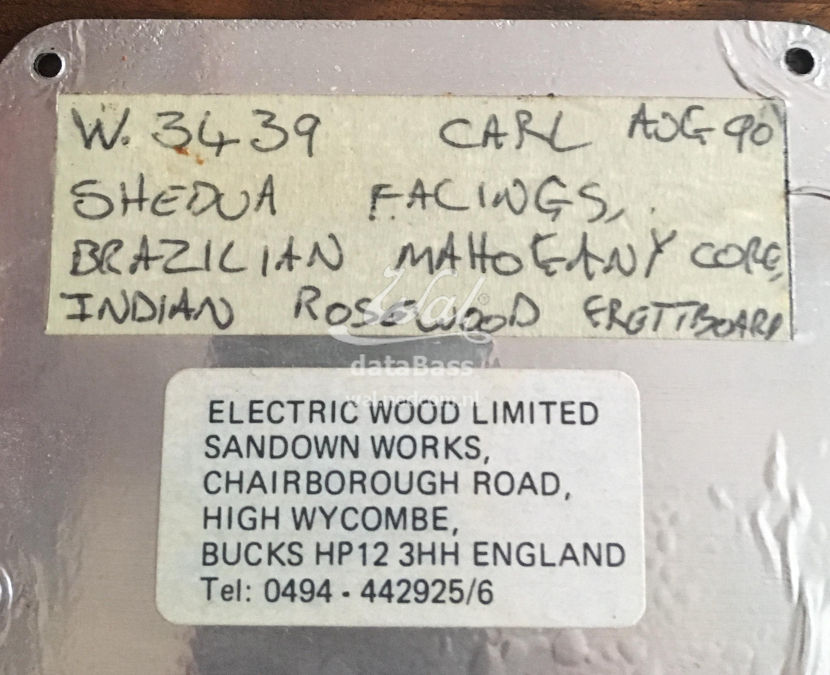 W. 3439 CARL AUG 90
SHEDUA FACINGS,
BRAZILIAN MAHOGANY CORE,
INDIAN ROSEWOOD FRETTBOARD
Wal®
dataBass
wal.nedcom.nl
ELECTRIC WOOD LIMITED
SANDOWN WORKS,
CHAIRBOROUGH ROAD,
HIGH WYCOMBE,
BUCKS HP12 3HH ENGLAND
Tel: 0494 - 442925/6